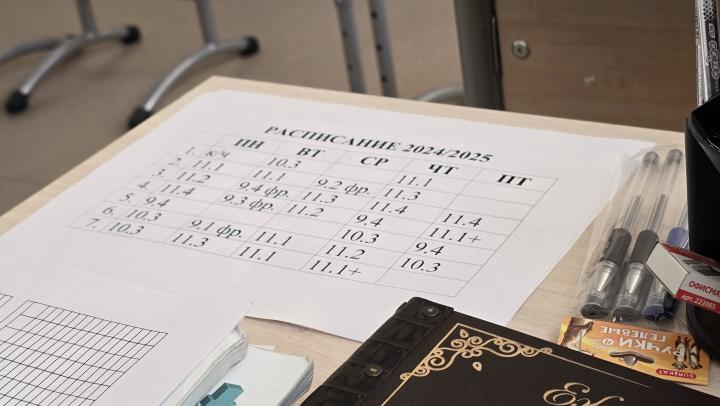 РАСПИСАНИЕ 2024/2025
ПН ВТ СР ЧТ ПТ
1. к/ч 10.3 11.1
2. 11.1 11.1 9.2 фр. 11.3
3. 11.2 9.4 фр. 11.3 11.4 11.4
4. 11.4 9.3 фр. 11.2 9.4 11.1+
5. 9.4 10.3 9.4
6. 10.3 9.1 фр. 11.1 11.2 10.3
7. 10.3 11.3 11.1 11.1+
ОФИСМА
арт. 222085
РУЧКИ
ГЕЛЕВЫЕ